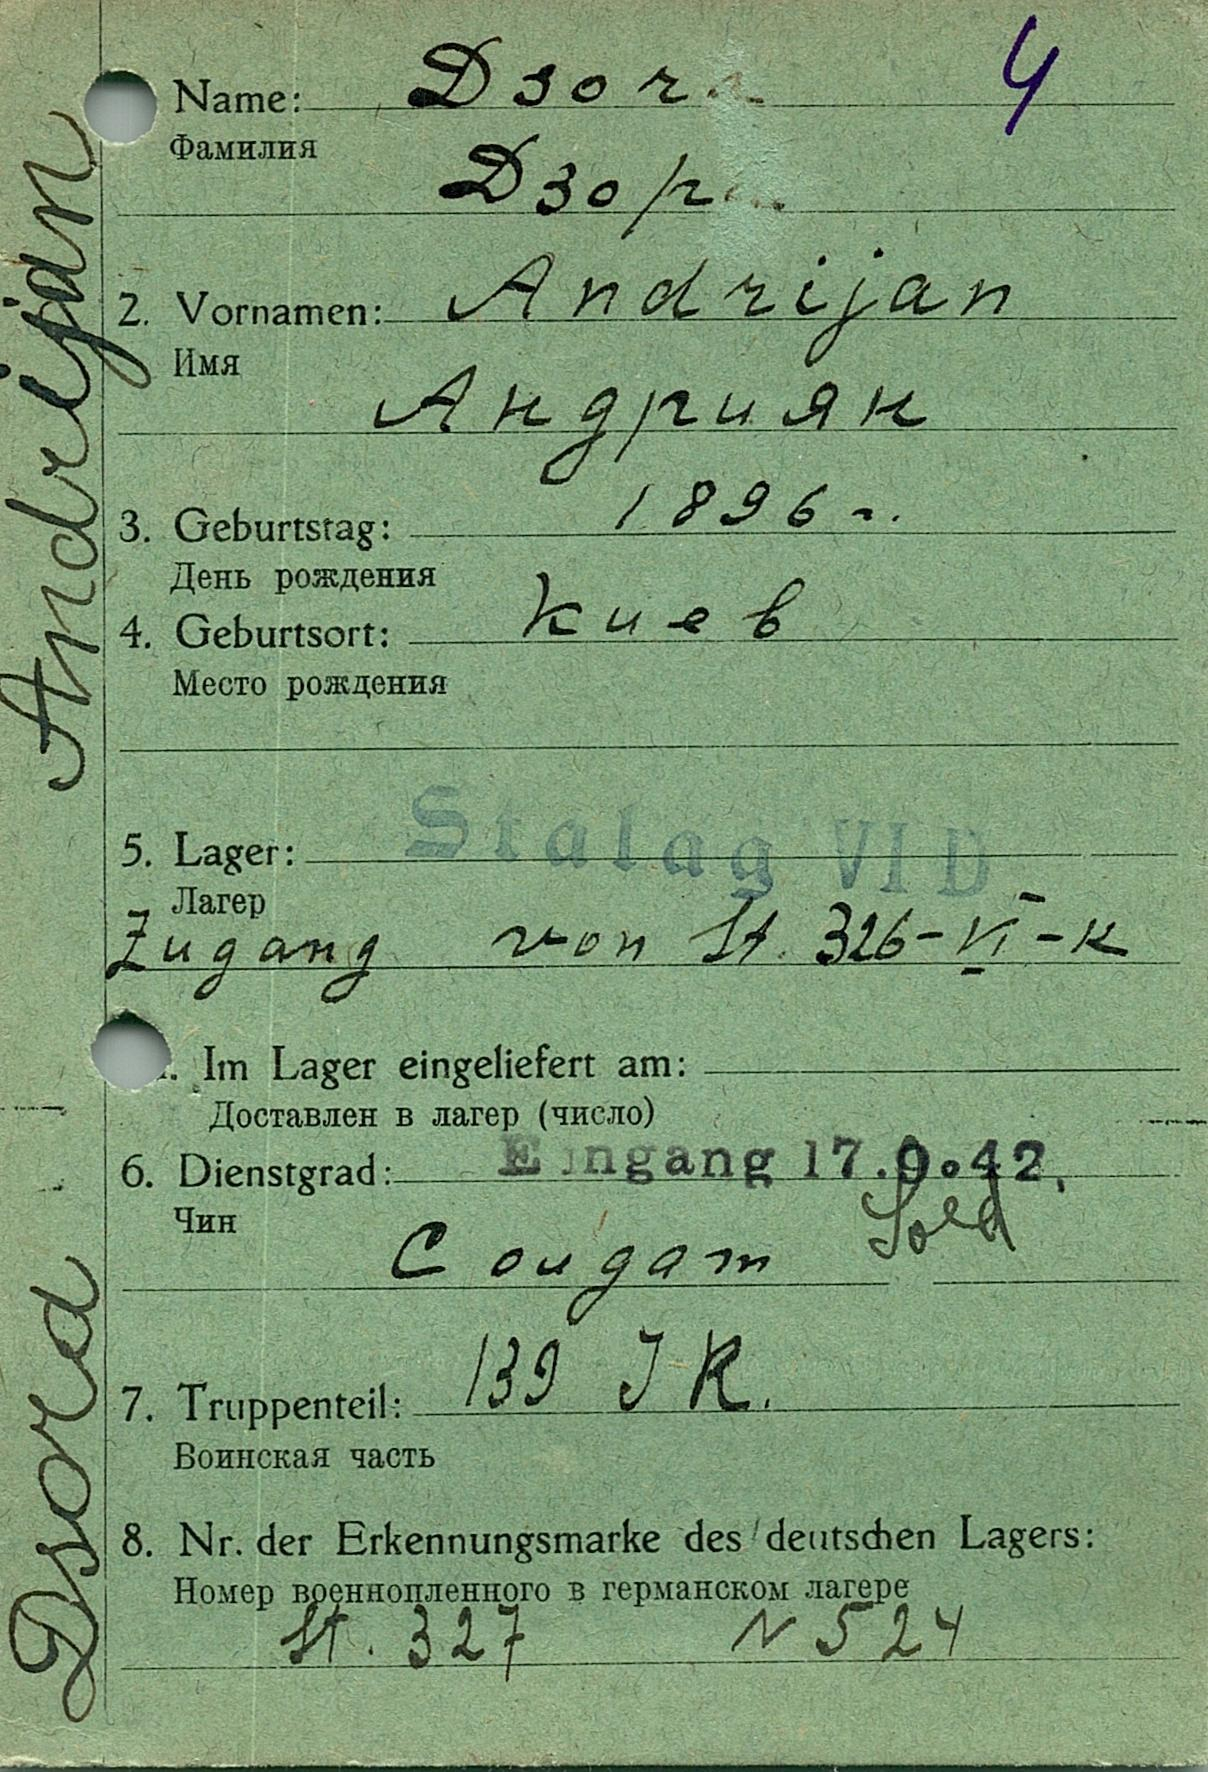 Name: Dзor
4
Фамилия
Дзор
2. Vornamen: Andrijan
Имя
Андриян
3. Geburtstag: 1896 г.
День рождения
4. Geburtsort: Киев
Место рождения
Stalag VI D
5. Lager:
Лагер
Zugang von St. 326-VI-K
Im Lager eingeliefert am:
Доставлен в лагер (число)
Eingang 17.9.42.
6. Dienstgrad:
Sold
Чин
Солдат
7. Truppenteil: 139 JR.
Воинская часть
8. Nr. der Erkennungsmarke des deutschen Lagers:
Номер военнопленного в германском лагере
St. 327 N 524
Dsora Andrijan